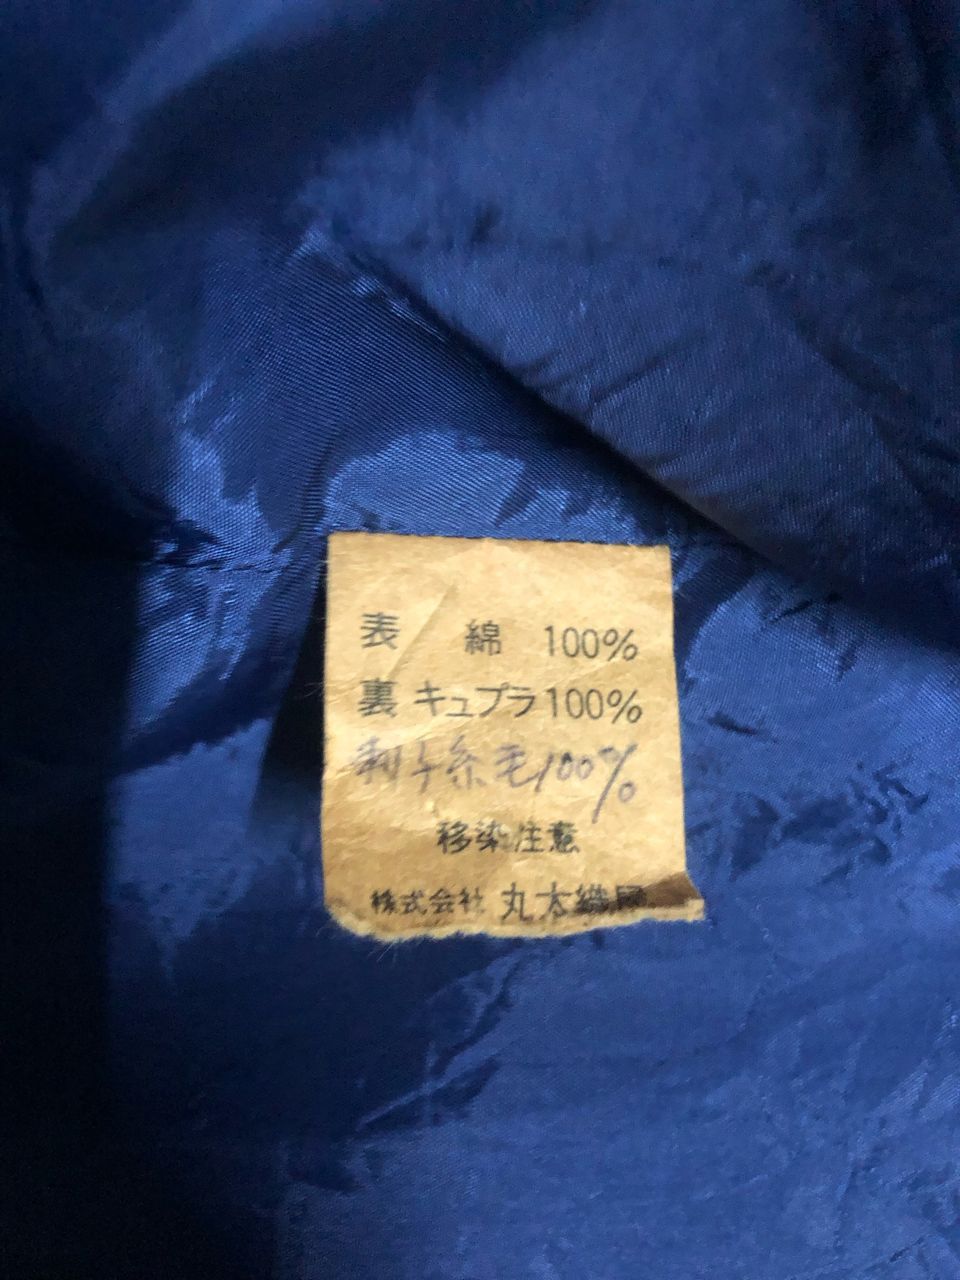 表 綿 100%
裏 キュプラ 100%
刺シ糸毛100%
移染注意
株式会社 丸太織